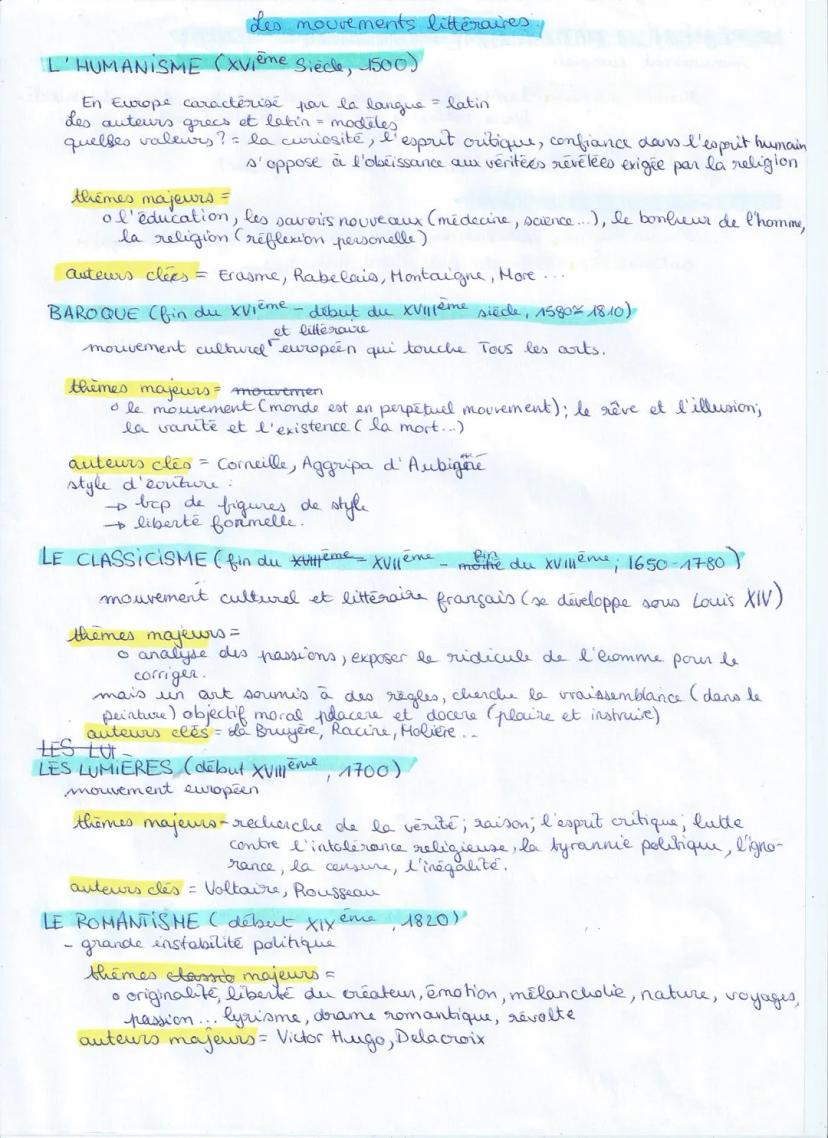 Les mouvements littéraires
L'HUMANISME (XVIème Siècle, 1500)
En Europe caractérisé par la langue = latin
Les auteurs grecs et latin = modèles
quelles valeurs ? = la curiosité, l'esprit critique, confiance dans l'esprit humain
s'oppose à l'obéissance aux véritées révélées exigée par la religion
thèmes majeurs =
o l'éducation, les savoirs nouveaux (médecine, science...), le bonheur de l'homme,
la religion (réflexion personelle)
auteurs clées = Erasme, Rabelais, Montaigne, More ...
BAROQUE (fin du XVIème - début du XVIIIème siècle, 1580 1810)
et littéraire
mouvement culturel européen qui touche Tous les arts.
thèmes majeurs = mouvemen
o le mouvement (monde est en perpétuel mouvement); le rêve et l'illusion;
la vanité et l'existence (la mort...)
auteurs clés = Corneille, Aggripa d'Aubigné
style d'écriture :
→ bcp de figures de style
→ liberté formelle.
LE CLASSICISME (fin du XVIIIème XVIIème - fin moitié du XVIIIème; 1650-1780)
mouvement culturel et littéraire français (se développe sous Louis XIV)
thèmes majeurs =
o analyse des passions, exposer le ridicule de l'Homme pour le
corriger.
mais un art soumis à des règles, cherche la vraissemblance (dans le
peinture) objectif moral placere et docere (plaire et instruire)
auteurs clés = La Bruyère, Racine, Molière ..
LES LUI
LES LUMIÈRES (début XVIIIème, 1700)
mouvement européen
thèmes majeurs - recherche de la vérité; raison; l'esprit critique; lutte
contre l'intolérance religieuse, la tyrannie politique, l'igno-
rance, la censure, l'inégalité.
auteurs clés = Voltaire, Rousseau
LE ROMANTISME (début XIXème, 1820)
- grande instabilité politique
thèmes classic majeurs =
o originalité, liberté du créateur, émotion, mélancholie, nature, voyages,
passion ... lyrisme, drame romantique, révolte
auteurs majeurs = Victor Hugo, Delacroix